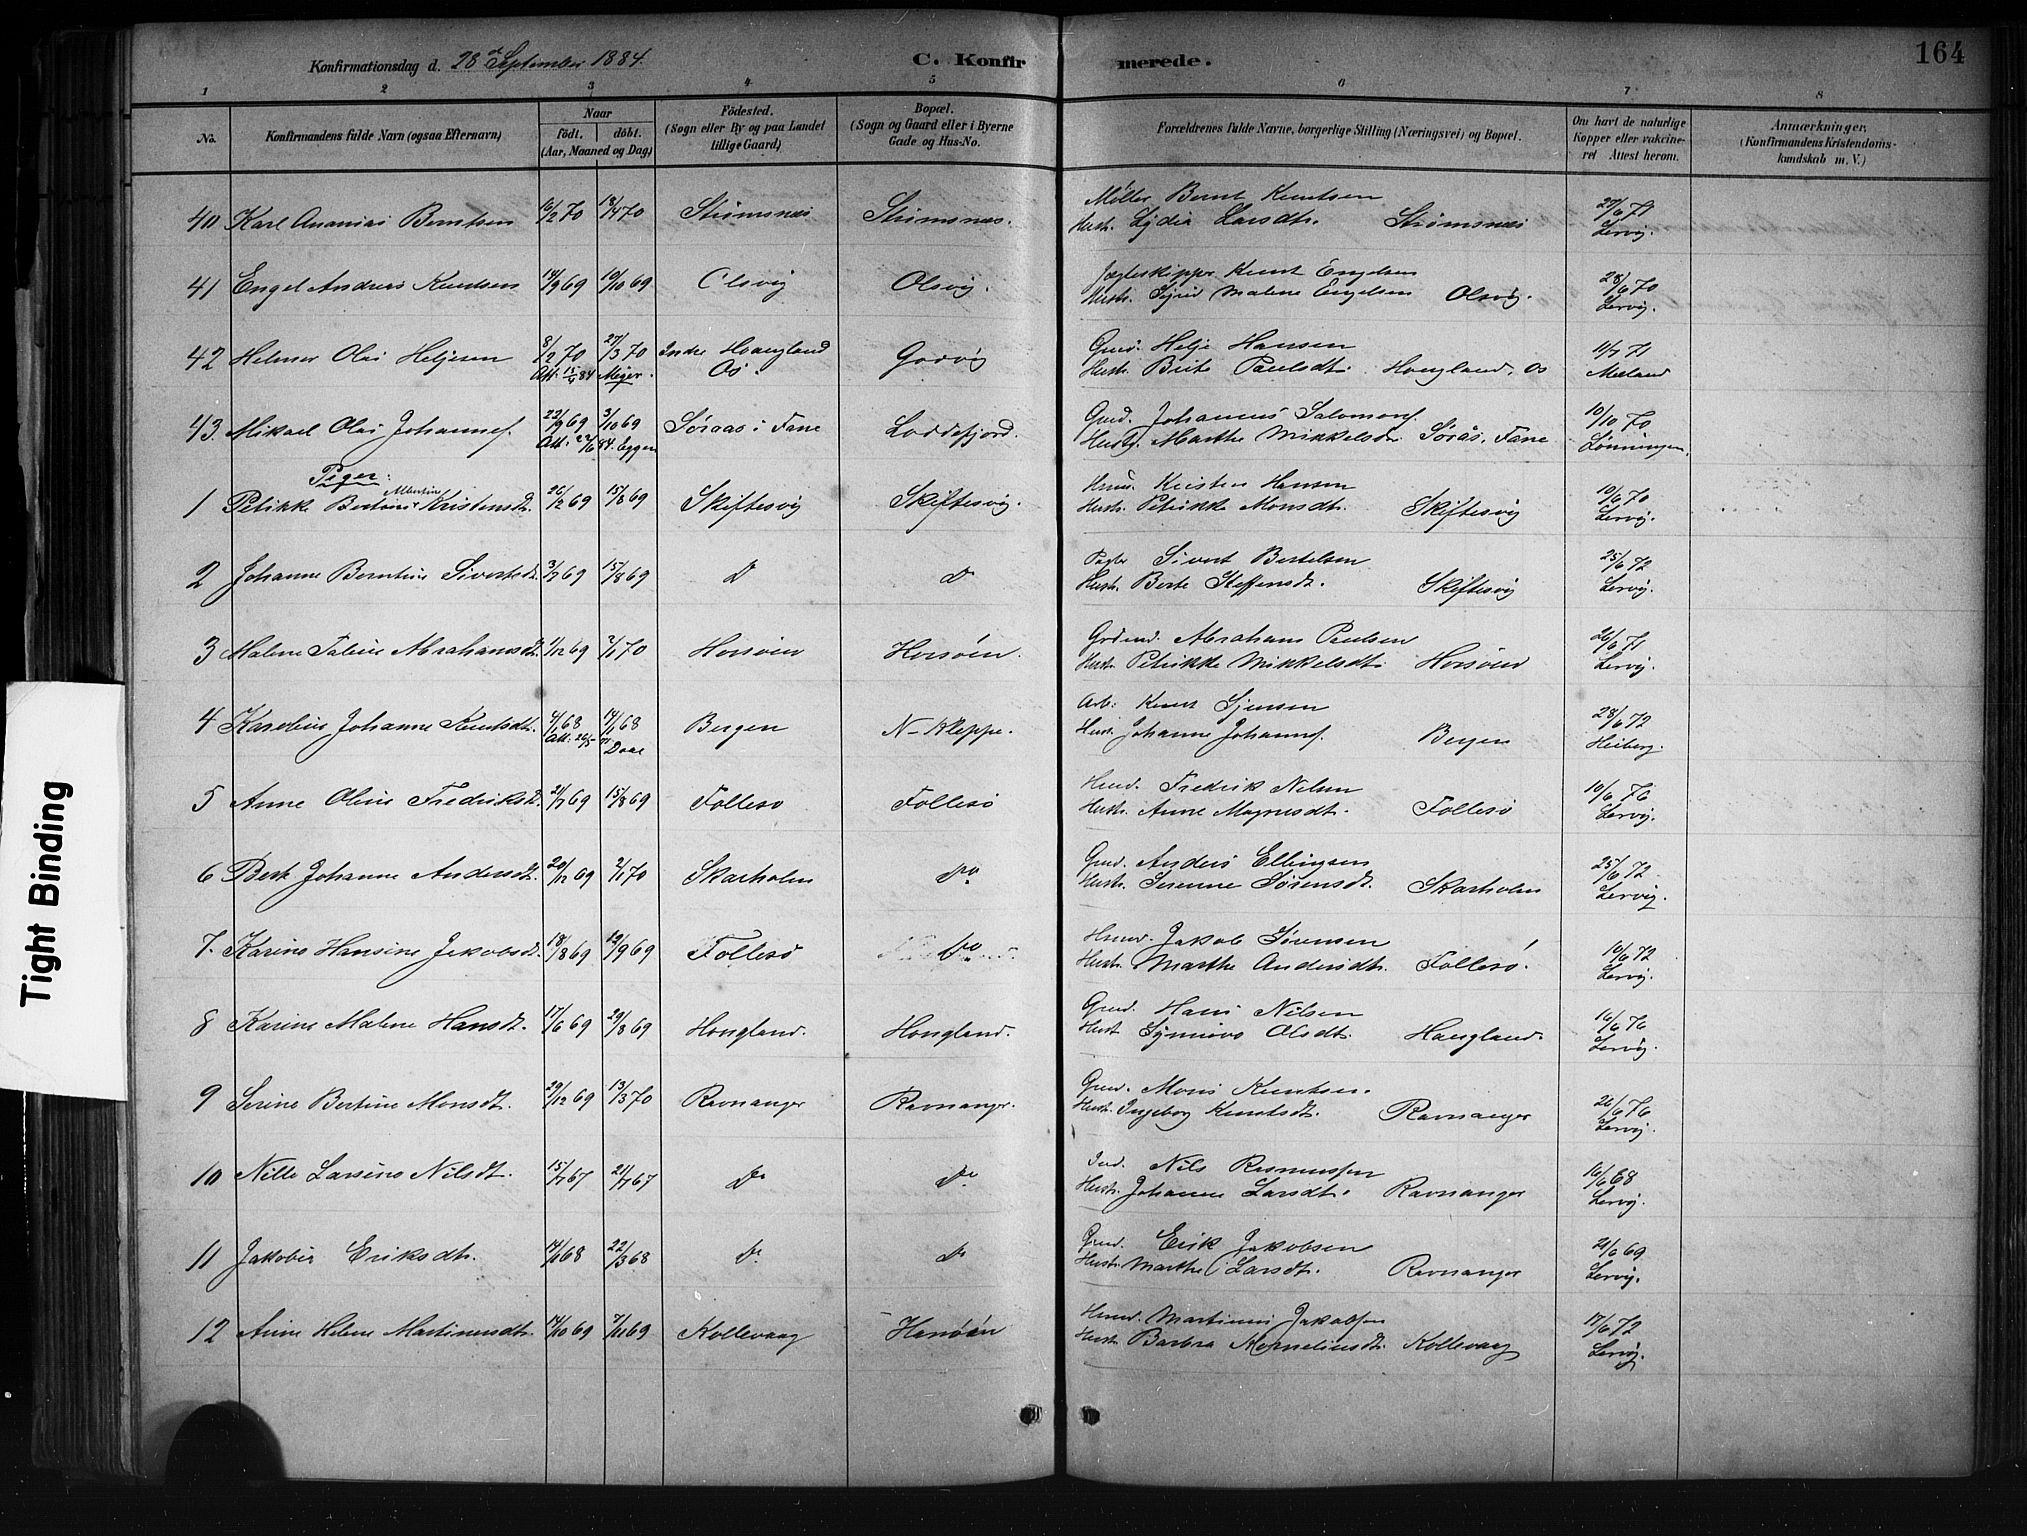 164
Konfirmationsdag d. 28de September 1884.
C. Konfirmerede.
1 2 3 4 5 6 7 8
No.
Konfirmandens fulde Navn (ogsaa Efternavn)
Naar
födt. döbt.
(Aar, Maaned og Dag)
Födested.
(Sogn eller By og paa Landet
tillige Gaard)
Bopæl.
(Sogn og Gaard eller i Byerne
Gade og Hus-No.
Forældrenes fulde Navne, borgerlige Stilling (Næringsvei) og Bopæl.
Om havt de naturlige
Kopper eller vakcine-
ret Attest herom.
Anmærkninger,
(Konfirmandens Kristendoms-
kundskab m. V.)
40 Karl Ananias Berntsen 16/2 70 18/4 70 Strømsnæs Strømsnæs. Møller Bernt Knutsen 27/6 71
Hustr. Lydia Larsdtr. Strømsnæs Lervig.
41 Engel Andreas Knudsen 14/9 69 10/10 69 Olsvig Olsvig. Jægteskipper Knut Engelsen 28/6 70
Hustr. Syrid Malene Engelsen Olsvig. Lervig.
42 Helmer Olai Heljesen 8/2 70 27/3 70 Indre Hougland Godvig Grud. Helje Hansen 11/7 71
Att: 15/4 84 Meyer. Os. Hustr. Brite Paulsdt. Hougland, Os Meland
43. Mikael Olai Johannes. 22/9 69 3/10 69 Søraas i Fane Loddefjord. Grud. Johannes Salomons. 10/10 70
Att: 22/6 84. Eggen Hustr. Marthe Mikkelsdr. Sørås, Fane Lønningen.
Piger:
Albertine
1 Petrikke Bertine Kristensdt. 26/2 69 15/8 69 Skiftesvig Skiftesvig. Husm. Kristen Hansen 10/6 70
Hustr. Petrikke Monsdt. Skiftesvig Lervig.
2 Johanne Berntine Sivertsdt. 3/7 69 15/8 69 Do Do Pagter Sivert Bertelsen 25/6 72
Hustr. Berte Steffensdt. Skiftesvig Lervig.
3 Malene Taline Abrahamsdt. 1/12 69 2/1 70 Horsöen Horsöen. Grdmd. Abraham Paulsen 26/6 71
Hustr. Petrikke Mikkelsdt. Horsöen Lervig.
4 Karoline Johanne Knutsdt. 4/1 68 14/1 68 Bergen N-Kleppe. Arb: Knut Sjursen 28/6 72
Att: 26/5 84 Daae Hustr. Johanne Johannes. Bergen Heiberg.
5 Anne Oline Fredriksdt. 21/7 69 15/8 69 Follesö Follesö Husmd. Fredrik Nilsen 10/6 76
Hustr. Anne Magnusdt. Follesö Lervig.
6 Berte Johanne Andersdt. 20/12 69 2/1 70 Skarholm Do Grud. Anders Ellingsen 25/6 72
Hustr. Serenne Sørensdt. Skarholm Lervig.
7. Karine Hansine Jakobsdt. 18/8 69 12/9 69 Follesö Do Husmd. Jakob Sørensen 10/6 72
Hustr. Marthe Andersdtr. Follesö. Lervig.
8 Karine Malene Hansdt. 17/6 69 29/8 69 Hougland. Hougland. Grud. Hans Nilsen 16/6 76
Hustr Synneve Olsdt. Haugland. Lervig.
9 Serine Bertine Monsdt. 29/12 69 13/3 70 Ravnanger Ravnanger. Grud. Mons Knutsen. 26/6 76
Hustr. Ingeborg Knutsdt. Ravnanger Lervig.
10 Nille Larsine Nilsdt. 15/7 67 21/7 67 Do Do Ind. Nils Rasmussen 16/6 68
Hustr. Johanne Larsdt. Ravnanger Lervig.
11 Jakobie Eriksdtr. 14/1 68 22/3 68 Do Do Grud. Erik Jakobsen 21/6 69
Hustr. Marthe Larsdt. Ravnanger Lervig.
12 Anne Helene Martinusdtr. 14/10 69 7/11 69 Kollevaag Hanöen Husmd. Martinus Jakobsen 17/6 72
Hustr. Barbra Korneliusdt. Kollevaag Lervig.
Tight Binding